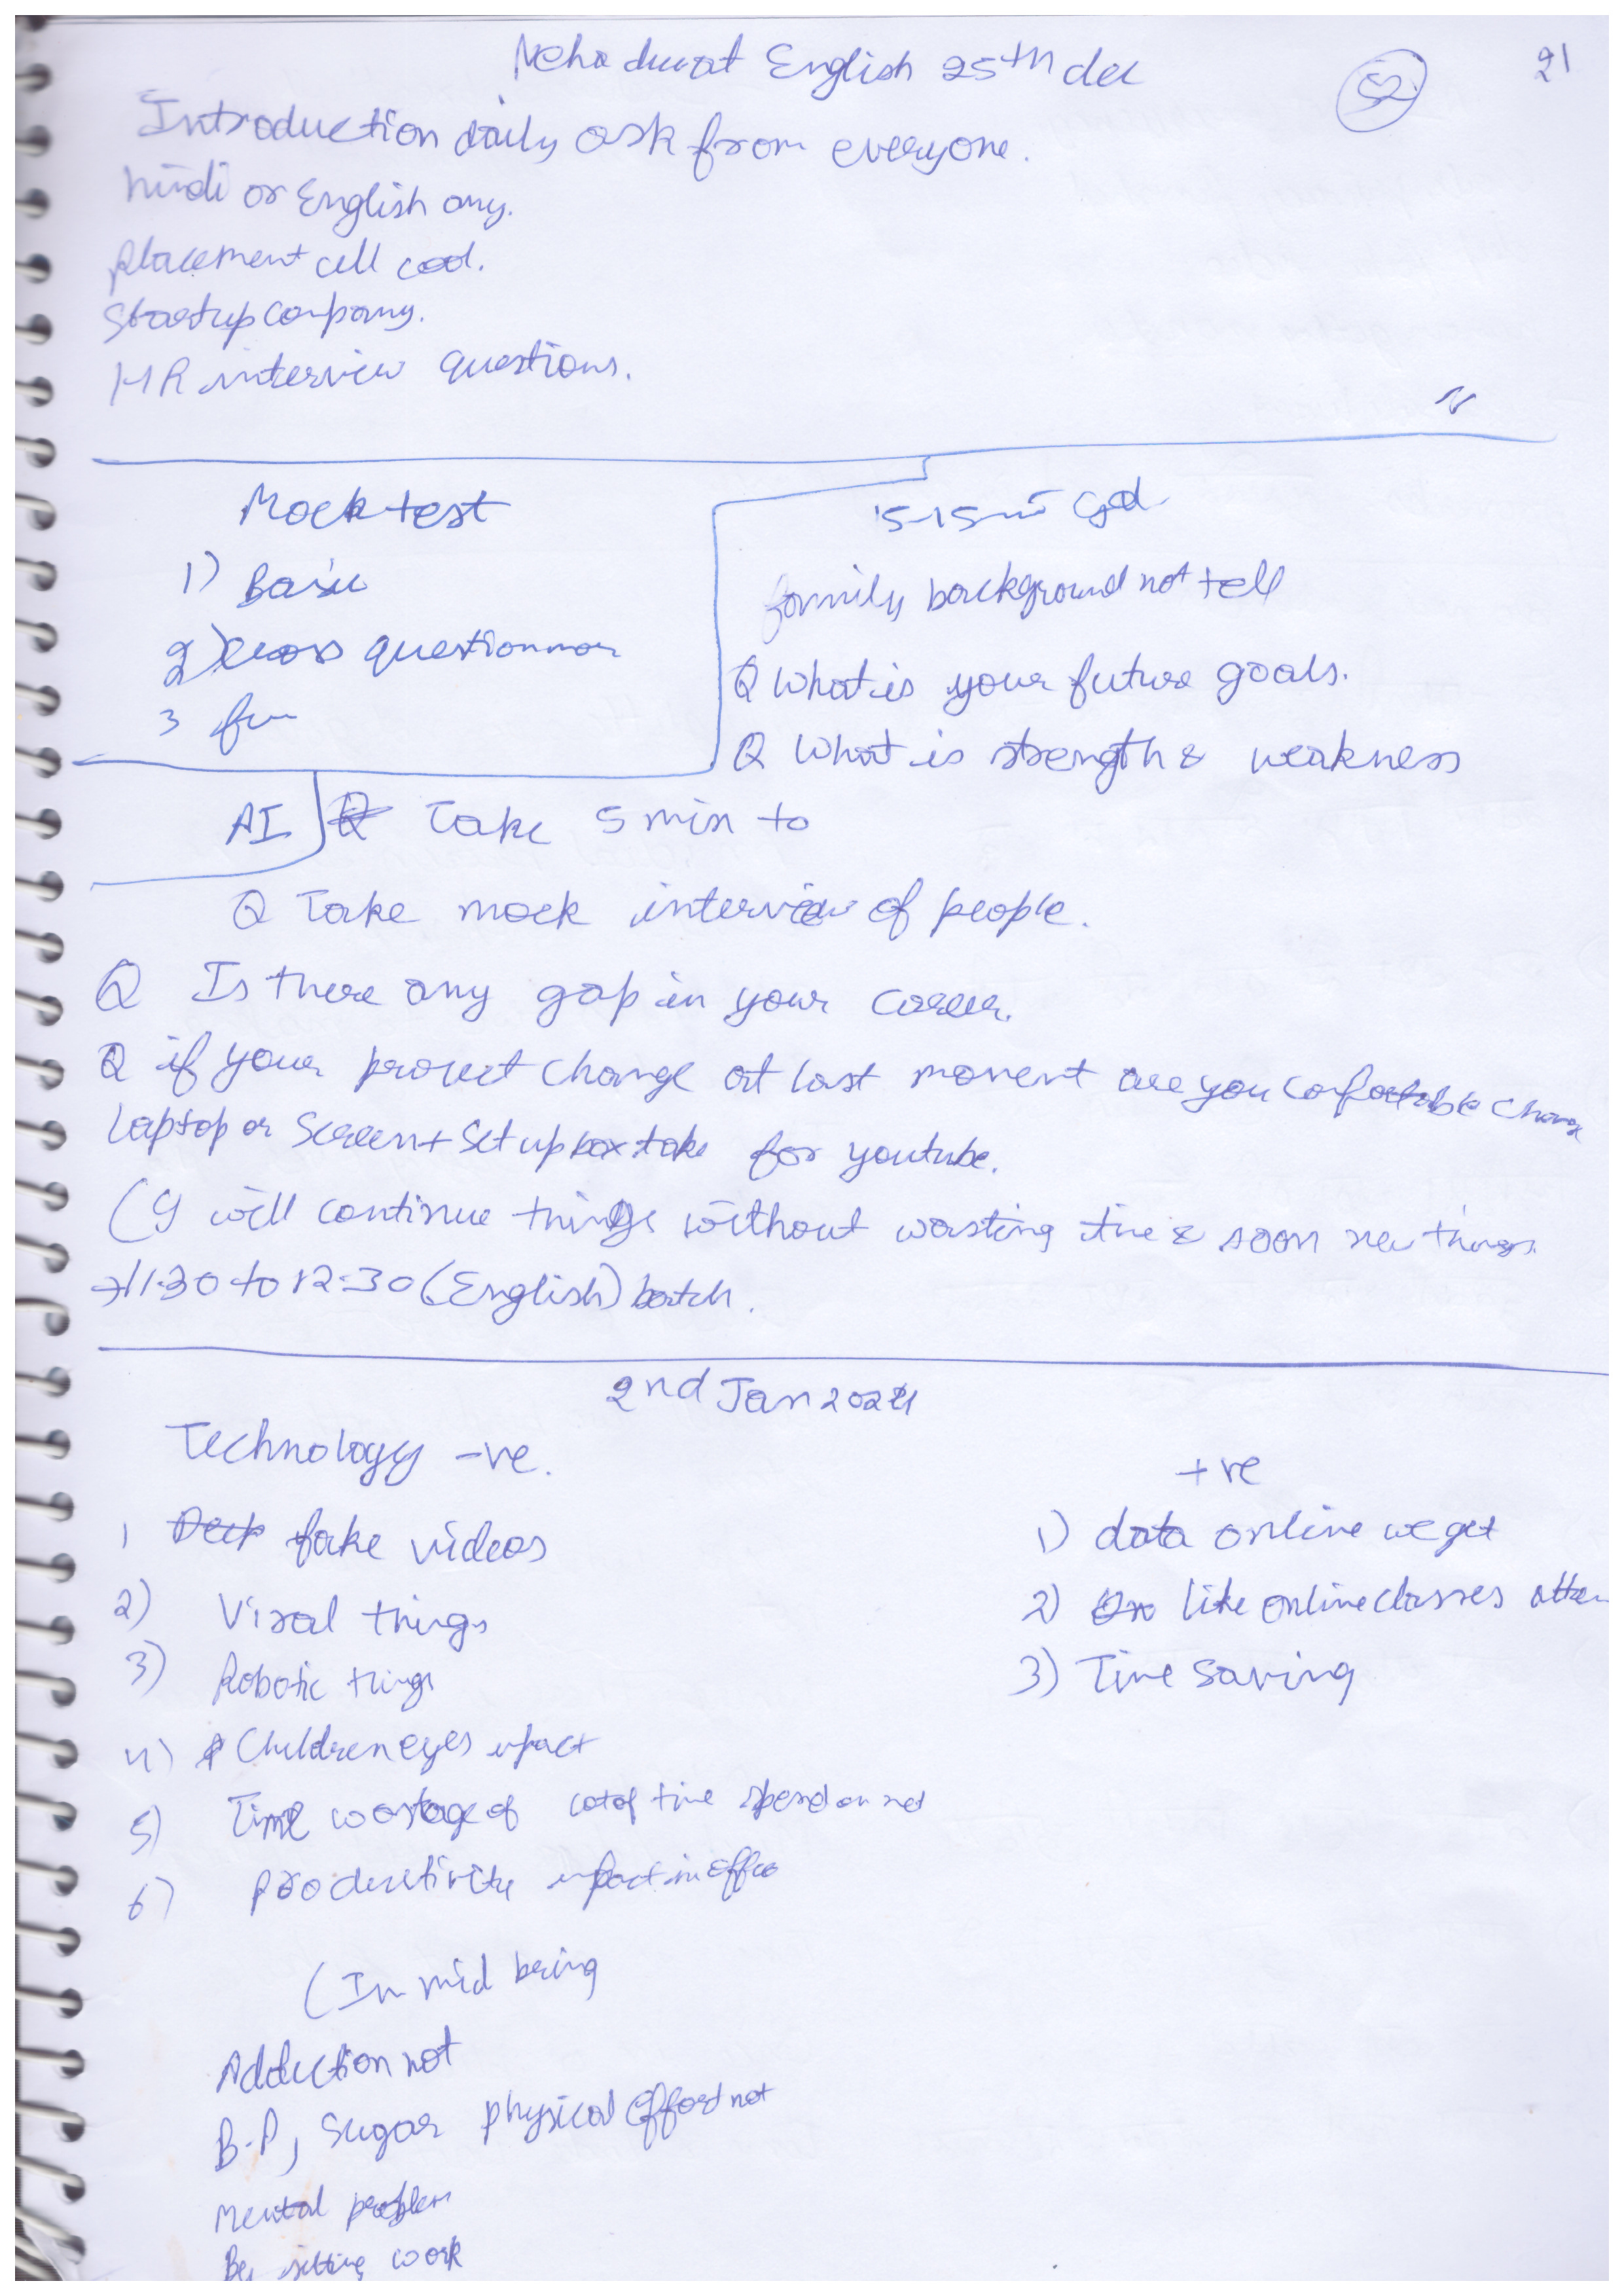 Neha English 25th dec
52
21
Introduction daily ask from everyone.
hindi or English any.
placement cell cood.
Startup company.
HR interview questions.
Mock test
1) Basic
2) Cross questionnar
3 fun
15-15 min Gd
family background not tell
Q What is your future goals.
Q What is strength & weakness
AI
Take 5 min to
Q Take mock interview of people.
Q Is there any gap in your career.
Q if your project change at last moment are you comfortable change
laptop or Screen + Set up box take for youtube.
(I will continue things without wasting time & soon new things.
→ 11:30 to 12:30 (English) batch.
2nd Jan 2024
Technology -ve.
1 Deep fake videos
2) Viral things
3) Robotic things
4) Children eyes impact
5) Time wastage of lot of time spend on net
6) productivity impact in office
+ve
1) data online we get
2) like online classes atten
3) Time saving
(In mid being
Addiction not
B.P, Sugar physical effort not
Mental problem
By sitting work